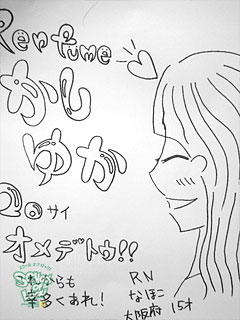 Renfume
かし
ゆか
20サイ
オメデトウ!!
これからも
幸多くあれ!
RN
なほこ
大阪府 15才